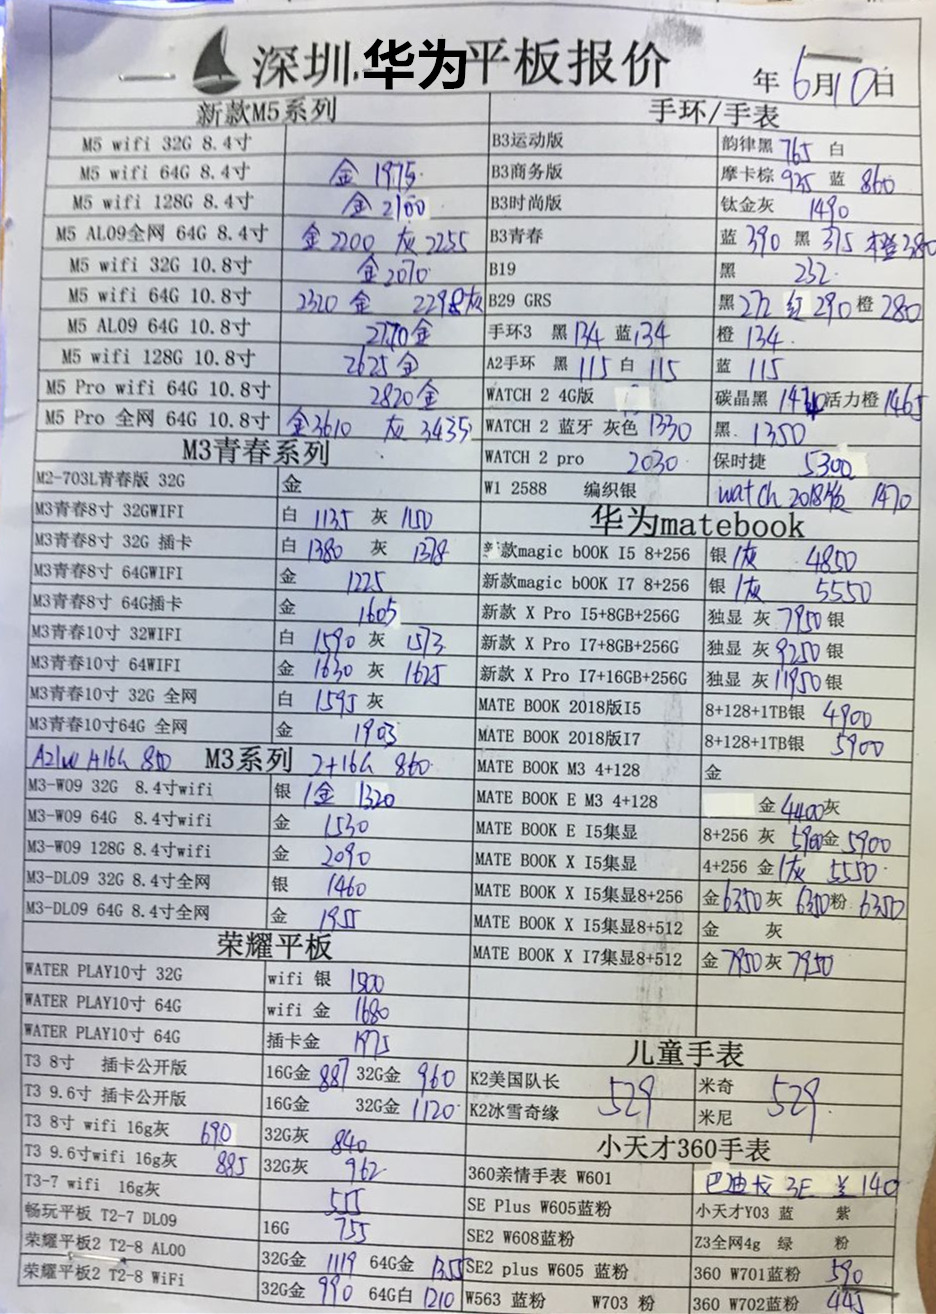 深圳.华为平板报价 年6月10日
新款M5系列
M5 wifi 32G 8.4寸
M5 wifi 64G 8.4寸 金 1975
M5 wifi 128G 8.4寸 金 2160
M5 AL09全网 64G 8.4寸 金2200 灰2255
M5 wifi 32G 10.8寸 金2070
M5 wifi 64G 10.8寸 2320 金 2298灰
M5 AL09 64G 10.8寸 2770金
M5 wifi 128G 10.8寸 2625金
M5 Pro wifi 64G 10.8寸 2820金
M5 Pro 全网 64G 10.8寸 金3610 灰3435
M3青春系列
M2-703L青春版 32G 金
M3青春8寸 32GWIFI 白 1135 灰 1150
M3青春8寸 32G 插卡 白 1380 灰 1378
M3青春8寸 64GWIFI 金 1225
M3青春8寸 64G插卡 金 1605
M3青春10寸 32WIFI 白 1590 灰 1573
M3青春10寸 64WIFI 金 1630 灰 1625
M3青春10寸 32G 全网 白 1595 灰
M3青春10寸64G 全网 金 1903
M3系列 2+16G 860
M3-W09 32G 8.4寸wifi 银/金 1320
M3-W09 64G 8.4寸wifi 金 1530
M3-W09 128G 8.4寸wifi 金 2090
M3-DL09 32G 8.4寸全网 银 1460
M3-DL09 64G 8.4寸全网 金 1955
荣耀平板
WATER PLAY10寸 32G wifi 银 1500
WATER PLAY10寸 64G wifi 金 1680
WATER PLAY10寸 64G 插卡金 1975
T3 8寸 插卡公开版 16G金 887 32G金 960
T3 9.6寸 插卡公开版 16G金 32G金 1120
T3 8寸 wifi 16g灰 690 32G灰 840
T3 9.6寸wifi 16g灰 885 32G灰 962
T3-7 wifi 16g灰 555
畅玩平板 T2-7 DL09 16G 755
荣耀平板2 T2-8 AL00 32G金 1119 64G金 1355
荣耀平板2 T2-8 WiFi 32G金 990 64G白 1210
手环/手表
B3运动版 韵律黑 765 白
B3商务版 摩卡棕 935 蓝 860
B3时尚版 钛金灰 1490
B3青春 蓝 390 黑 375 橙380
B19 黑 232
B29 GRS 黑272 红 290 橙 280
手环3 黑134 蓝134 橙 134
A2手环 黑 115 白 115 蓝 115
WATCH 2 4G版 碳晶黑 1430 活力橙 1465
WATCH 2 蓝牙 灰色 1330 黑 1350
WATCH 2 pro 2030 保时捷 5300
W1 2588 编织银 watch 2018版 1470
华为matebook
新款magic bOOK I5 8+256 银/灰 4850
新款magic bOOK I7 8+256 银/灰 5550
新款 X Pro I5+8GB+256G 独显 灰 7950 银
新款 X Pro I7+8GB+256G 独显 灰 9250 银
新款 X Pro I7+16GB+256G 独显 灰 11950 银
MATE BOOK 2018版I5 8+128+1TB银 4900
MATE BOOK 2018版I7 8+128+1TB银 5900
MATE BOOK M3 4+128 金
MATE BOOK E M3 4+128 金 4400灰
MATE BOOK E I5集显 8+256 灰 5900金 5900
MATE BOOK X I5集显 4+256 金/灰 5550
MATE BOOK X I5集显8+256 金6350灰 6350粉 6350
MATE BOOK X I5集显8+512 金 灰
MATE BOOK X I7集显8+512 金 7950灰 7950
儿童手表
K2美国队长 529 米奇 529
K2冰雪奇缘 米尼
小天才360手表
360亲情手表 W601 巴迪龙 3E 兰 140
SE Plus W605蓝粉 小天才Y03 蓝 紫
SE2 W608蓝粉 Z3全网4g 绿 粉
SE2 plus W605 蓝粉 360 W701蓝粉 590
W563 蓝粉 W703 粉 360 W702蓝粉 445